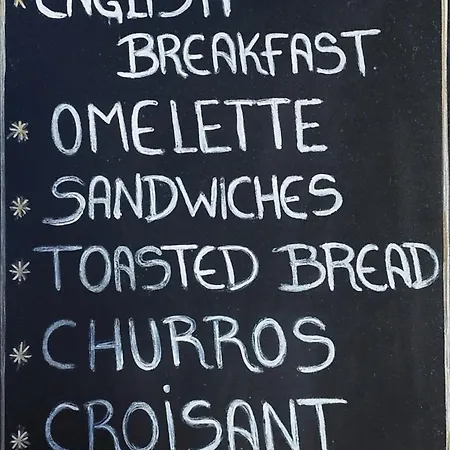 * ENGLISH
BREAKFAST
* OMELETTE
* SANDWICHES
* TOASTED BREAD
* CHURROS
* CROiSANT